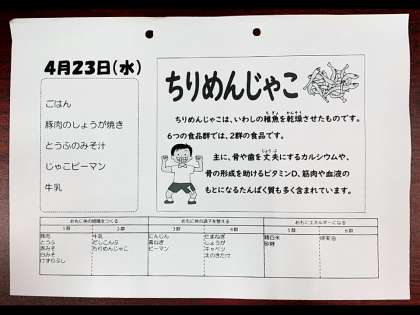 4月23日(水)
ごはん
豚肉のしょうが焼き
とうふのみそ汁
じゃこピーマン
牛乳
ちりめんじゃこ
ちりめんじゃこは、いわしの稚魚を乾燥させたものです。
6つの食品群では、2群の食品です。
主に、骨や歯を丈夫にするカルシウムや、
骨の形成を助けるビタミンD、筋肉や血液の
もとになるたんぱく質も多く含まれています。
おもに体の組織をつくる
1群 2群
豚肉 牛乳
とうふ だしこんぶ
赤みそ ちりめんじゃこ
白みそ
けずりぶし
おもに体の調子を整える
3群 4群
にんじん たまねぎ
青ねぎ しょうが
ピーマン キャベツ
えのきだけ
おもにエネルギーになる
5群 6群
精白米
砂糖